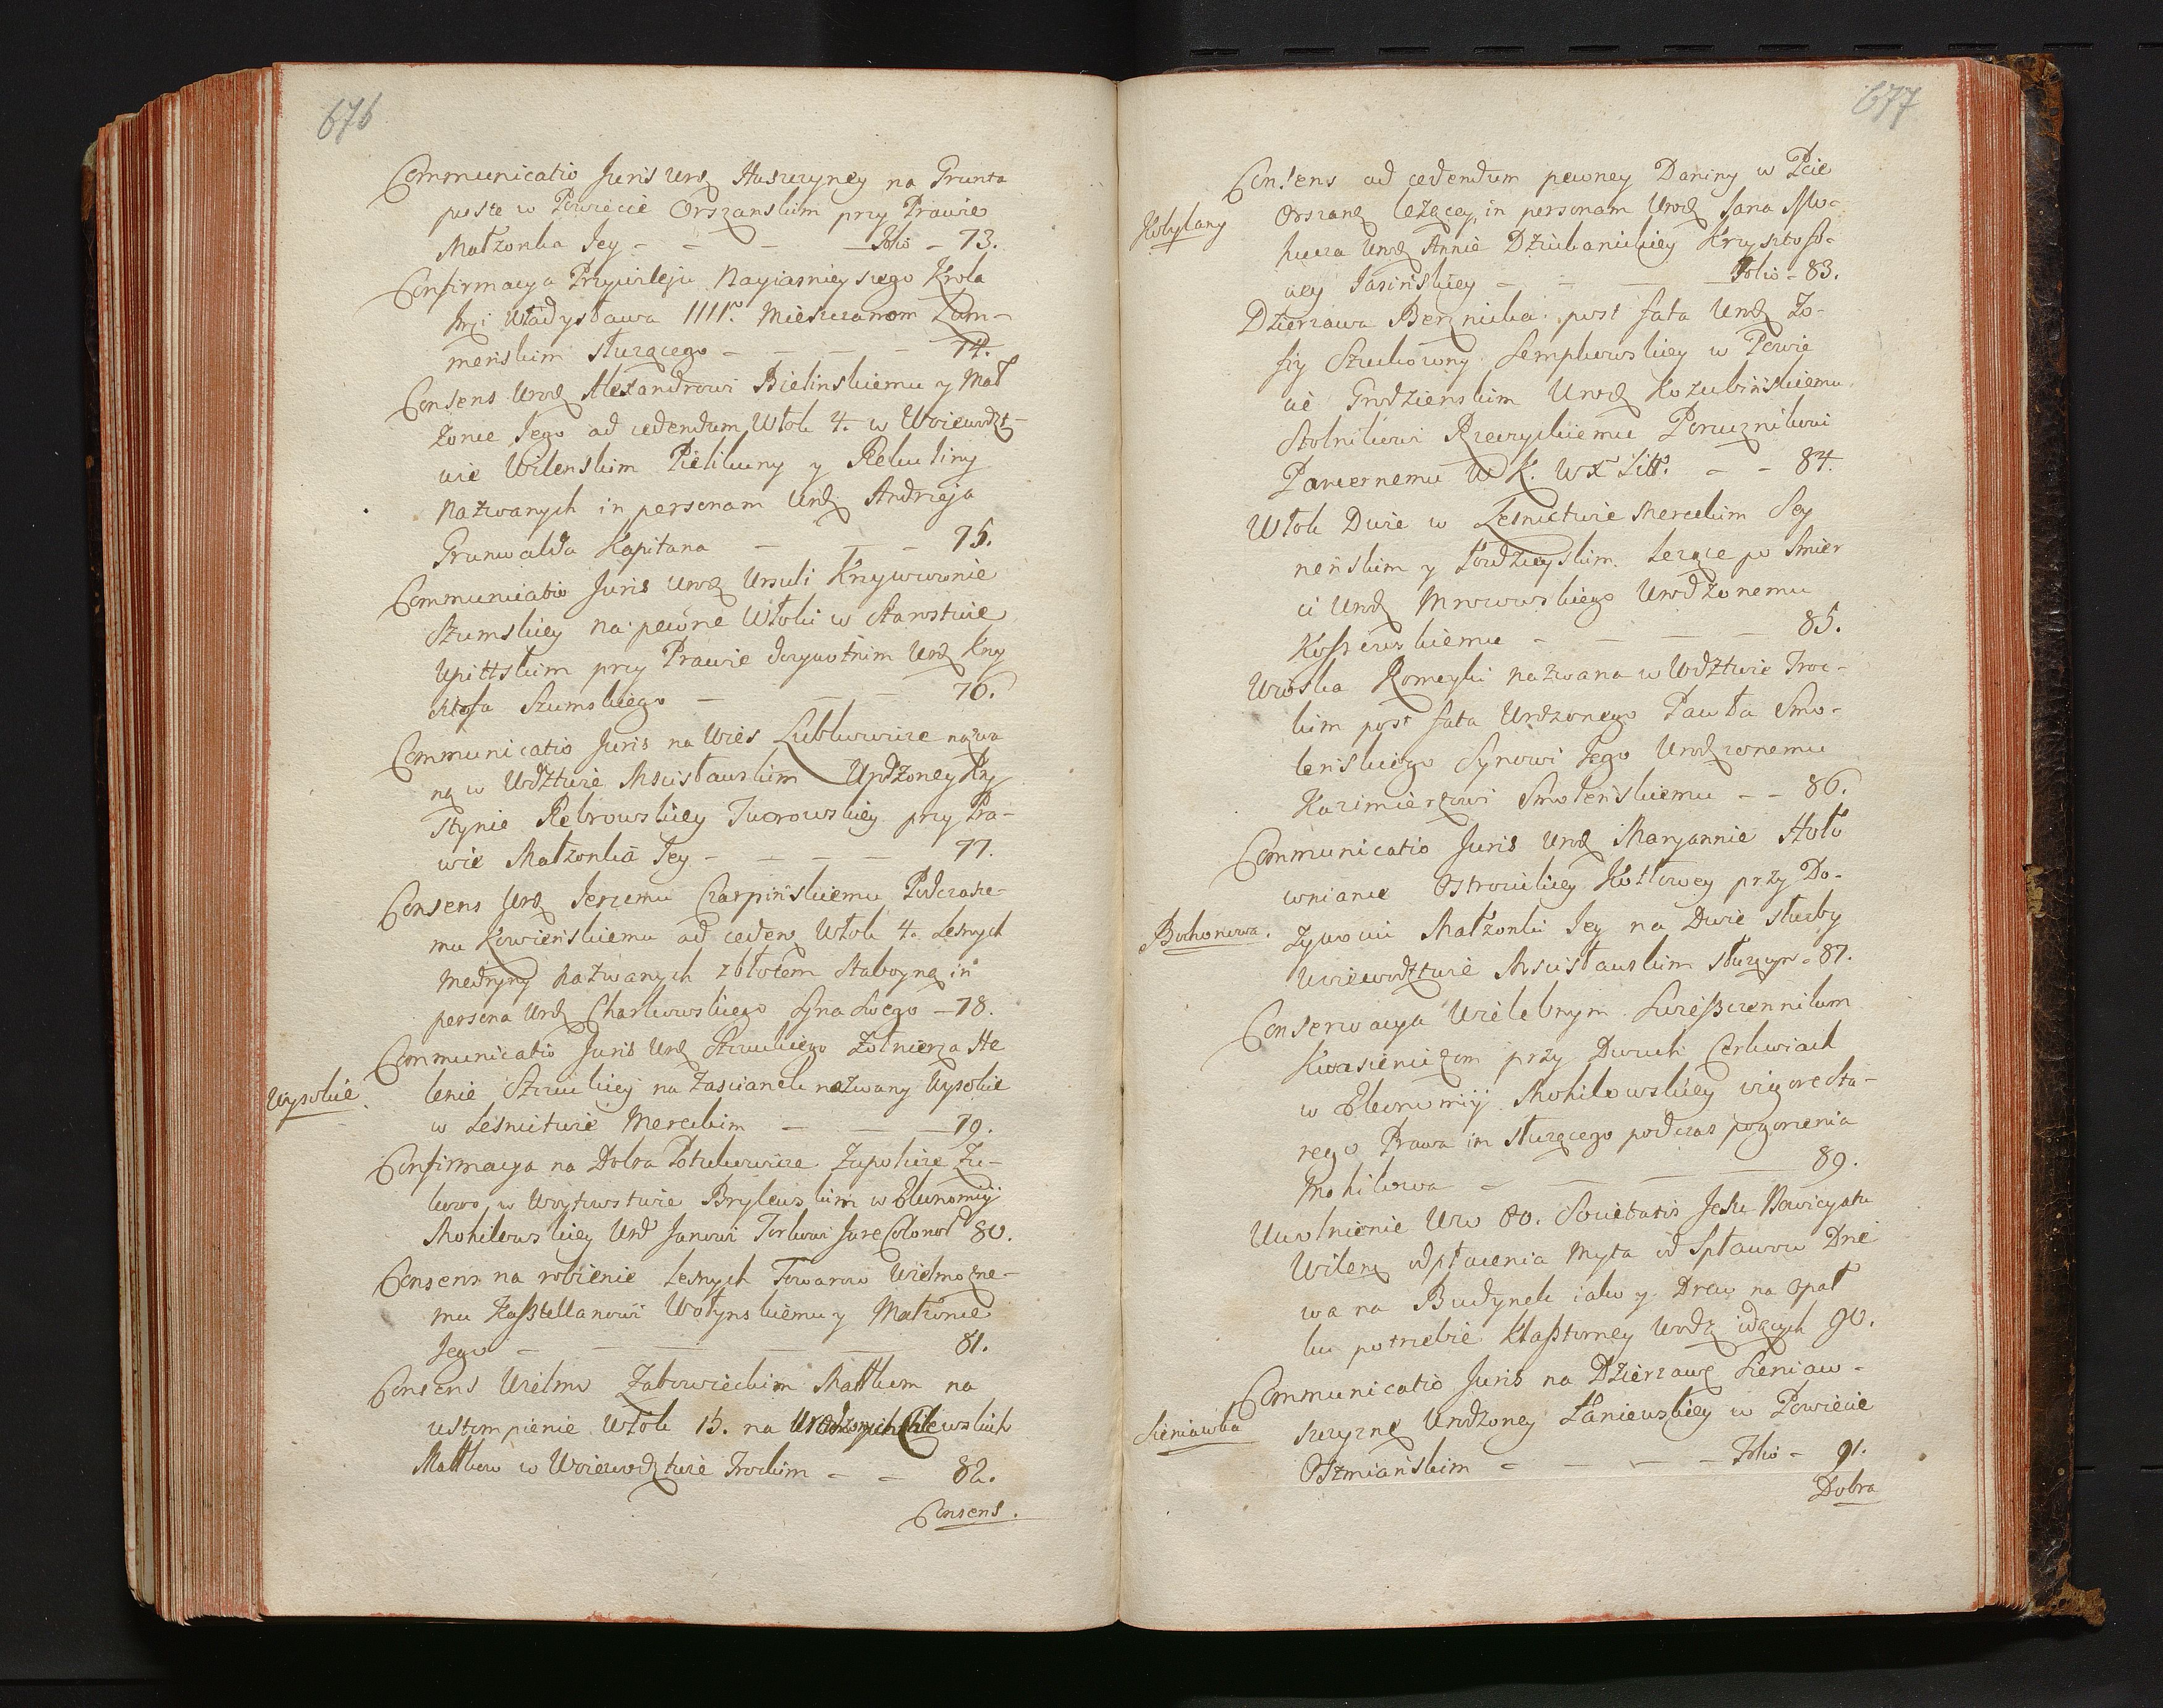 676
Communicatio Juris Urodz Huszczyney na Grunta
puste w Powiecie Orszanskim przy Prawie
Małzonka Jey - - - Folio - 73.
Confirmacya Przywileju Nayiasnieyszego Krola
Jmci Władysława IIII. Mieszczanom Łum-
menskim służącego - - - 74.
Consens Urodz Alexandrowi Bielinskiemu y Mał
żonce Jego ad cedendum Włok 4. w Woiewodzt-
wie Wilenskim Pielikuny y Rekutiny
nazwanych in personam Urodz Andrzeja
Grunwalda Kapitana - - - 75.
Communicatio Juris Urodz Urszuli Krzywcownie
Szumskiey na pewne Włoki w Starostwie
Upittskim przy Prawie dożywotnim Urodz Krzy
sztofa Szumskiego - - - 76.
Communicatio Juris na Wies Lubkowicze nazwa
ną w Wodztwie Mscisławskim Urodzoney Kry
stynie Rebrowskiey Tworowskiey przy Pra-
wie Małzonka Jey - - - - 77.
Consens Urodz Jerzemu Czarpińskiemu Podczasze-
mu Kowieńskiemu ad cedend Włok 4. Lesnych
Medryny nazwanych z błotem Stabryną in
persona Urodz Charkowskiego Syna Swego - 78.
Communicatio Juris Urodz Strumskiego Zołnierza He
lenie Strumskiey na Zascianek nazwany Wysokie
w Lesnictwie Mereckim - - - 79.
Wysokie.
Confirmacya na Dobra Potukowicze Zupolicze Zu-
kowo w Woytowstwie Brylewskim w Ekonomij
Mohilowskiey Urod Janowi Torkowi Jure Colonor 80.
Consens na robienie Lesnych Towarow Wielmozne-
mu Kasztellanowi Wołynskiemu y Małżonce
Jego - - - - 81.
Consens Wielmo Zabowieckim Małłkom na
ustompienie Włok 15. na Urodzonych Chlewskich
Małłkow w Woiewodztwie Trockim - - 82.
Consens.
677
Consens ad cedendum pewney Daniny w Pcie
Orszans leżącey, in personam Urodz Jana
Urodz Annie Dziubanickiey Krzysztofo-
wey Jasińskiey - - - Folio - 83.
Kobylany
Dzierzawa Berznicka post fata Urodz Zo-
fiy Szukowny Sempkowskiey w Powie
cie Grodzienskim Urodz Kozubińskiemu
Stolnikowi Rzeczyckiemu Porucznikowi
Pancernemu W K. W X Litt. - - 84.
Włok Dwie w Lesnictwie Mereckim Sey
neńskim y Łoździeyskim leżące po Smier
ci Urodz Mrocowskiego Urodzonemu
Kossewskiemu - - - - 85.
Wioska Romeyki nazwana w Wodztwie Troc-
kim post fata Urdzonego Pawła Smo-
lenskiego Synowi Jego Urodzonemu
Kazimierzowi Smoleńskiemu - - 86.
Communicatio Juris Urodz Maryannie Hoło
wniance Ostrowickiey Kozłowey przy Do-
żywociu Małżonki Jey na Dwie Służby
Woiewodztwie Mscisławskim służącym - 87.
Bochonowa.
Conserwacya Wielebnym Swieszczennikom
Kwasieniczom przy Dwuch Cerkwiach
w Ekonomij Mohilowskiey vigore Sta-
rego Prawa im służącego podczas pogorzenia
Mohilowa - - - - 89.
Uwolnienie Ww OO. Societatis Jesu Nowicyatu
Wilens od płacenia Myta od Spławow Drze
wa na Budynek iako y Drew na opał
ku potrzebie Klasztorney Wodą idących 90.
Communicatio Juris na Dzierzawę Sieniaw-
szczyznę Urodzoney Łaniewskiey w Powiecie
Oszmiańskim - - - - Folio - 91.
Sieniawka
Dobra